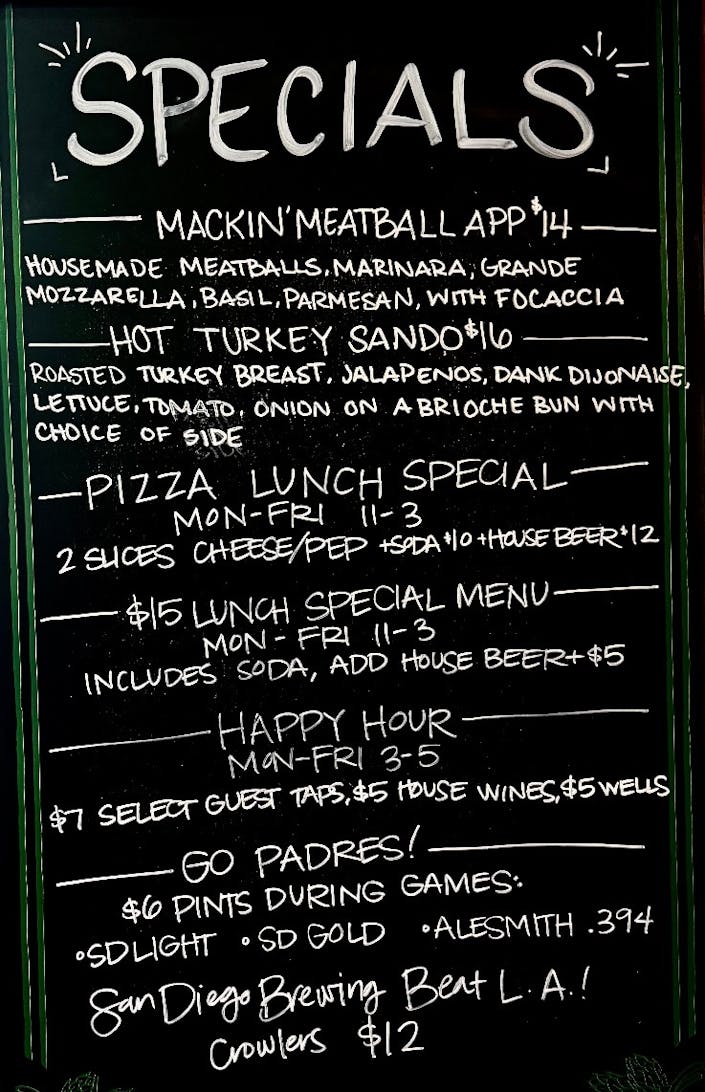 SPECIALS
MACKIN' MEATBALL APP $14
HOUSEMADE MEATBALLS, MARINARA, GRANDE
MOZZARELLA, BASIL, PARMESAN, WITH FOCACCIA
HOT TURKEY SANDO $16
ROASTED TURKEY BREAST, JALAPENOS, DANK DIJONAISE,
LETTUCE, TOMATO, ONION ON A BRIOCHE BUN WITH
CHOICE OF SIDE
PIZZA LUNCH SPECIAL
MON-FRI 11-3
2 SLICES CHEESE/PEP +SODA $10 +HOUSE BEER $12
$15 LUNCH SPECIAL MENU
MON-FRI 11-3
INCLUDES SODA, ADD HOUSE BEER +$5
HAPPY HOUR
MON-FRI 3-5
$7 SELECT GUEST TAPS, $5 HOUSE WINES, $5 WELLS
GO PADRES!
$6 PINTS DURING GAMES:
•SD LIGHT •SD GOLD •ALESMITH .394
San Diego Brewing Beat L.A.!
Crowlers $12